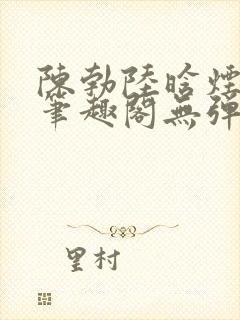 陳勃陸晗煙
筆趣閣無彈
里村